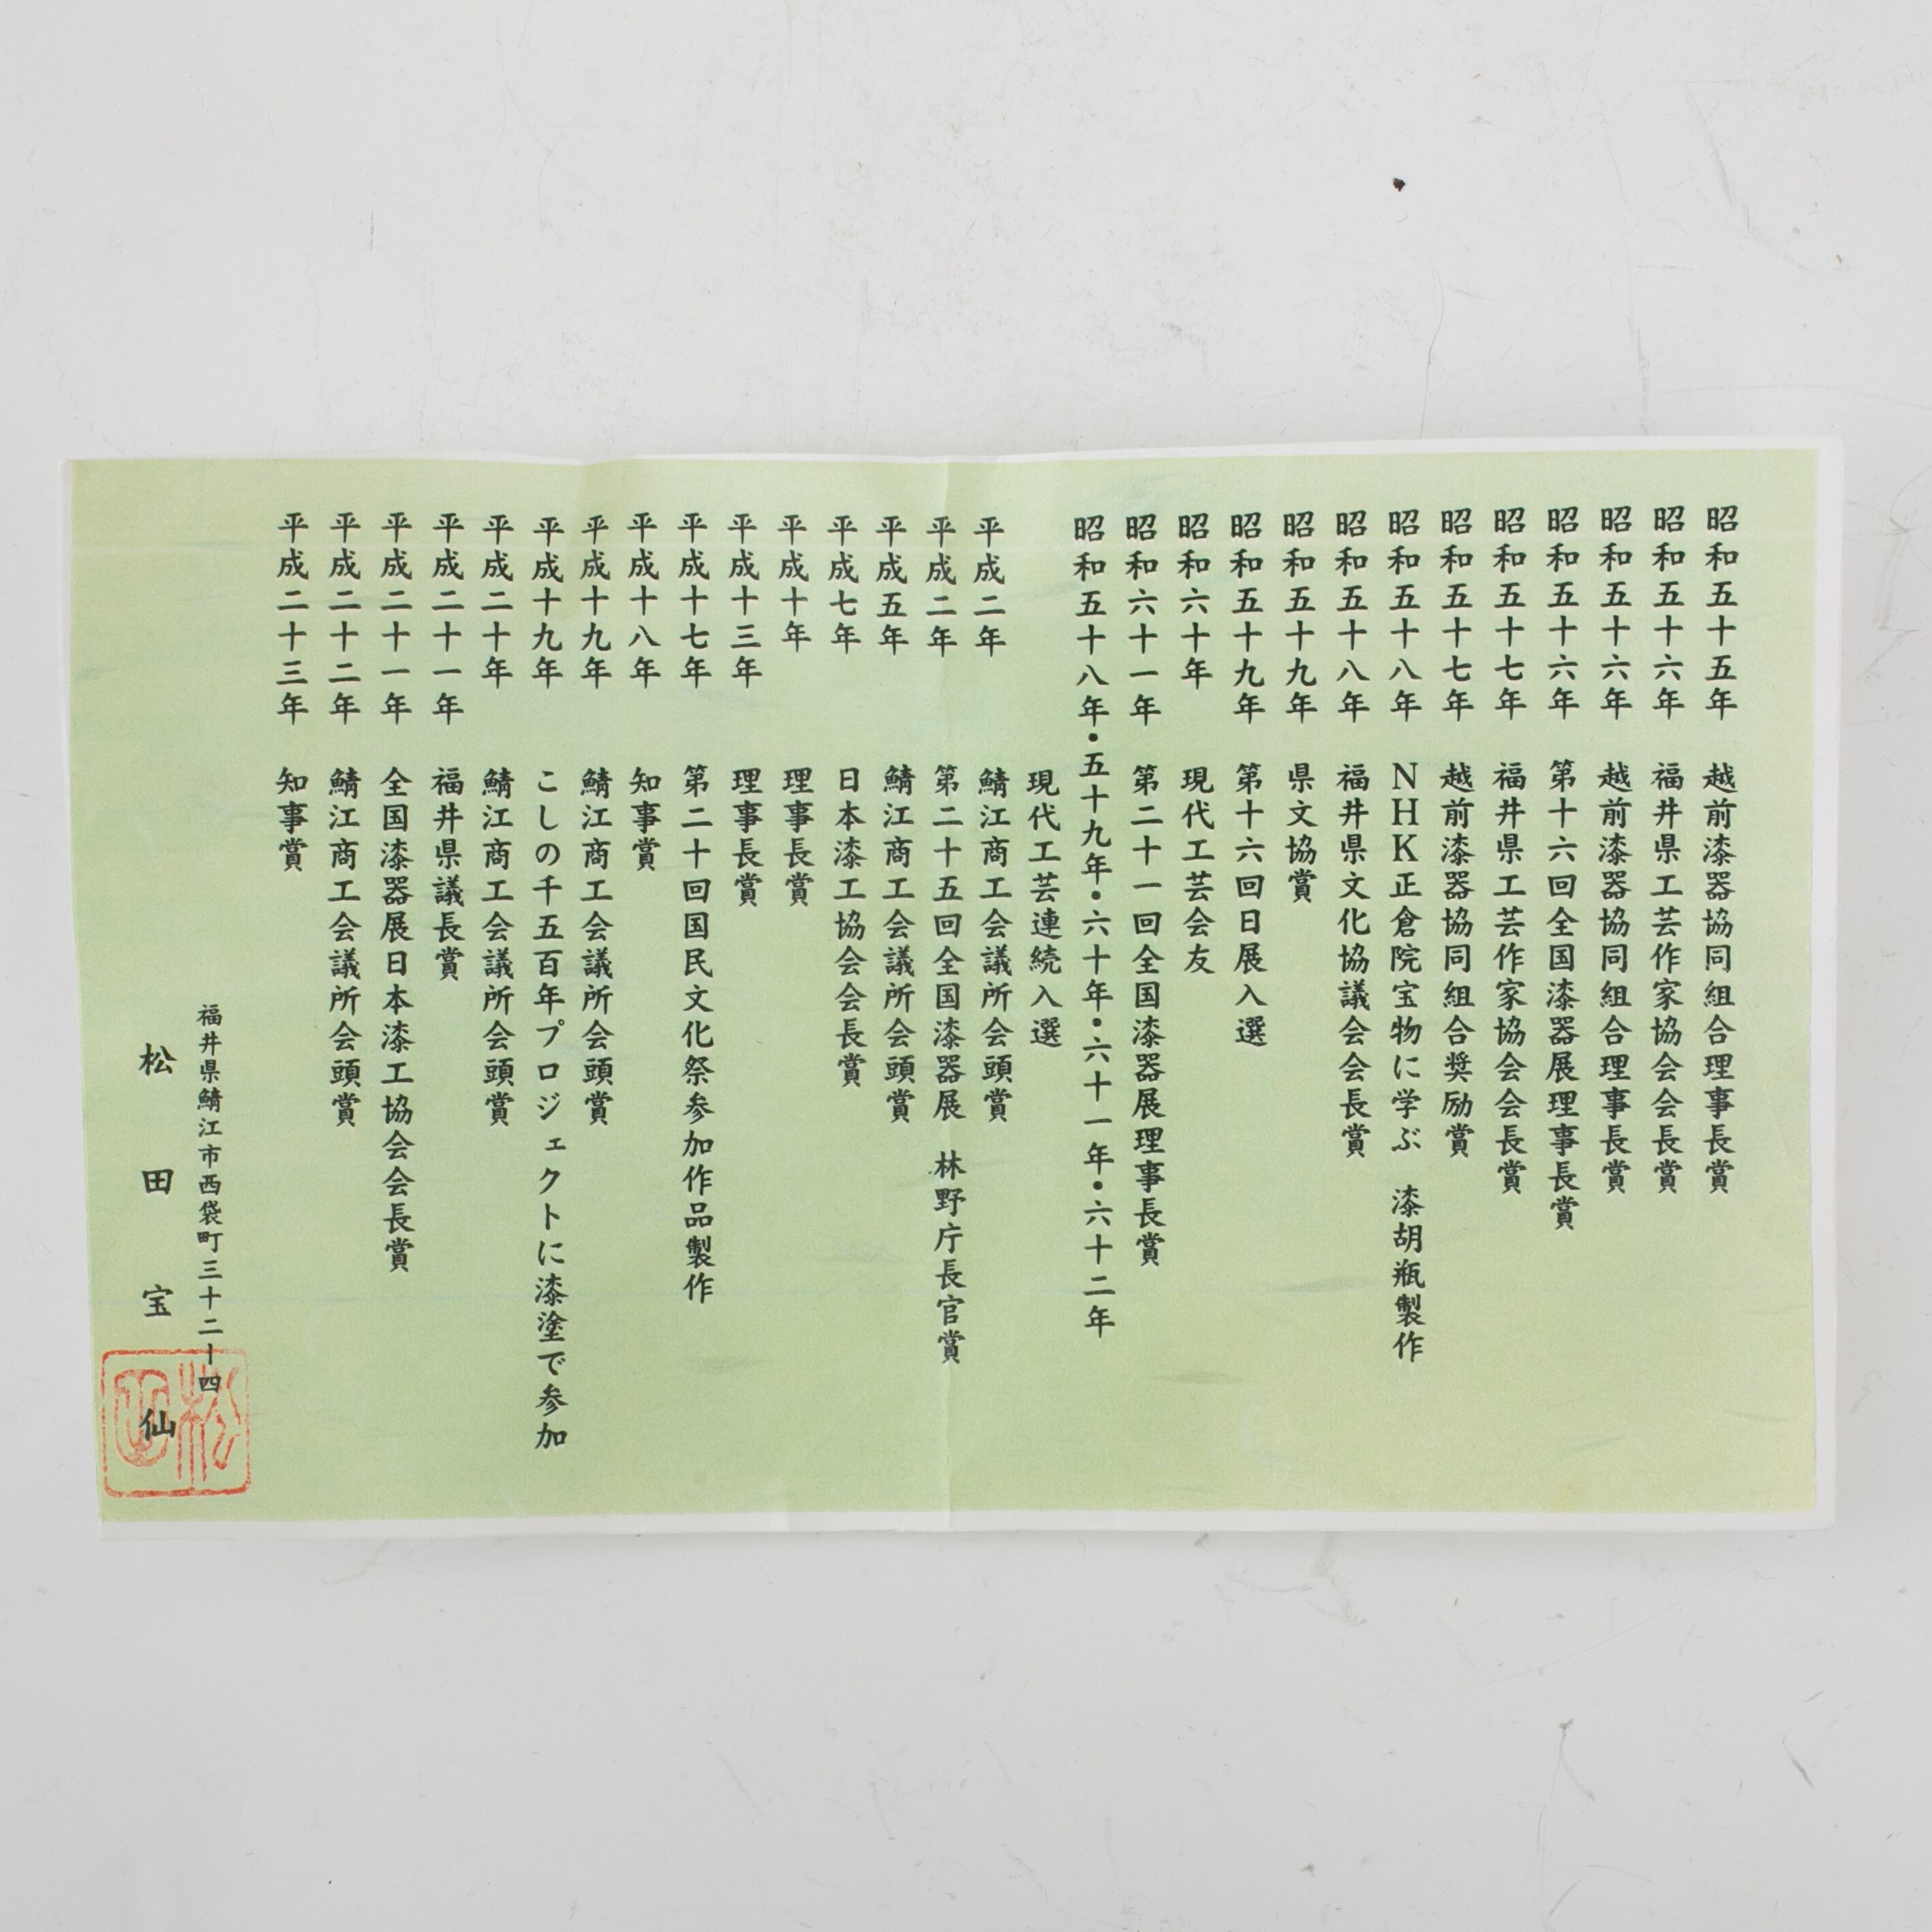 昭和五十五年　越前漆器協同組合理事長賞
昭和五十六年　福井県工芸作家協会会長賞
昭和五十六年　越前漆器協同組合理事長賞
昭和五十六年　第十六回全国漆器展理事長賞
昭和五十七年　福井県工芸作家協会会長賞
昭和五十七年　越前漆器協同組合奨励賞
昭和五十八年　NHK正倉院宝物に学ぶ　漆胡瓶製作
昭和五十八年　福井県文化協議会会長賞
昭和五十九年　県文協賞
昭和五十九年　第十六回日展入選
昭和六十年　現代工芸会友
昭和六十一年　第二十一回全国漆器展理事長賞
昭和五十八年・五十九年・六十年・六十一年・六十二年
現代工芸連続入選
平成二年　鯖江商工会議所会頭賞
平成二年　第二十五回全国漆器展　林野庁長官賞
平成五年　鯖江商工会議所会頭賞
平成七年　日本漆工協会会長賞
平成十年　理事長賞
平成十三年　理事長賞
平成十七年　第二十回国民文化祭参加作品製作
平成十八年　知事賞
平成十九年　鯖江商工会議所会頭賞
平成十九年　こしの千五百年プロジェクトに漆塗で参加
平成二十年　鯖江商工会議所会頭賞
平成二十一年　福井県議長賞
平成二十一年　全国漆器展日本漆工協会会長賞
平成二十二年　鯖江商工会議所会頭賞
平成二十三年　知事賞
福井県鯖江市西袋町三十二ー四
松田宝仙